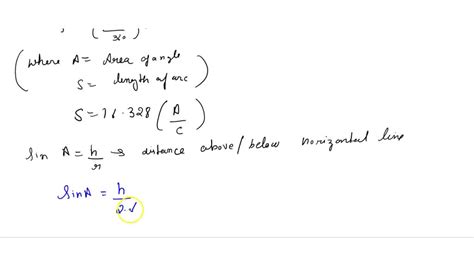 ; ( /360 )
( where A = Area of angle
S = length of arc )
S = 71.328 ( A/C )
Sin A = h/r → distance above/below horizontal line
Sin A = h/2.√